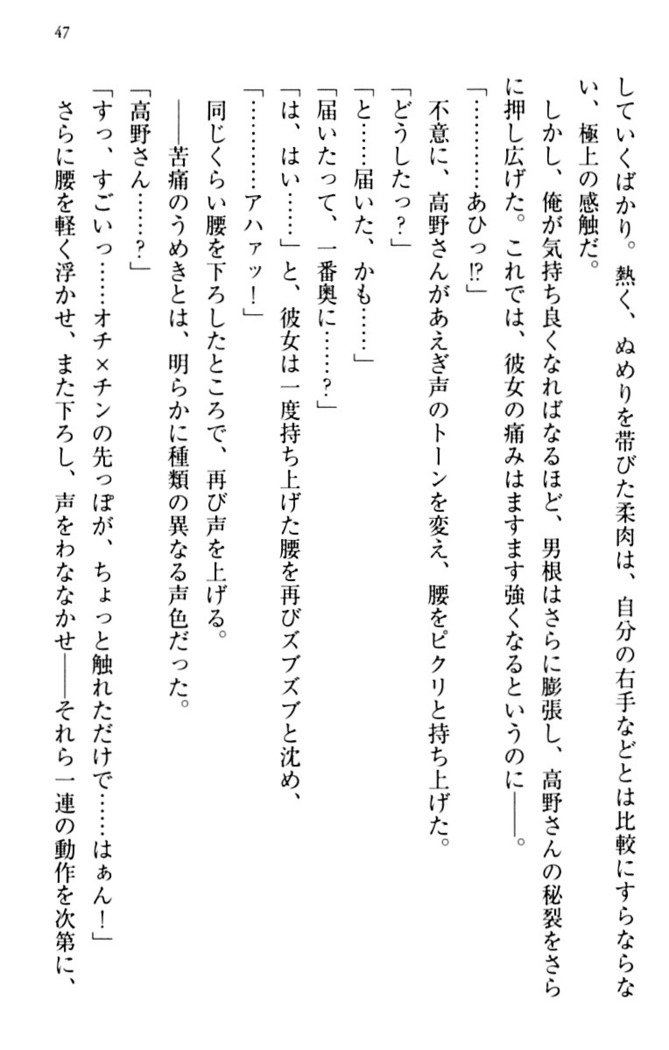 47
していくばかり。熱く、ぬめりを帯びた柔肉は、自分の右手などとは比較にすらならな
い、極上の感触だ。
しかし、俺が気持ち良くなればなるほど、男根はさらに膨張し、高野さんの秘裂をさら
に押し広げた。これでは、彼女の痛みはますます強くなるというのに――。
「…………あひっ!?」
不意に、高野さんがあえぎ声のトーンを変え、腰をピクリと持ち上げた。
「どうしたっ？」
「と……届いた、かも……」
「届いたって、一番奥に……？」
「は、はい……」と、彼女は一度持ち上げた腰を再びズブズブと沈め、
「…………アハァッ！」
同じくらい腰を下ろしたところで、再び声を上げる。
――苦痛のうめきとは、明らかに種類の異なる声色だった。
「高野さん……？」
「すっ、すごいっ……オチ×チンの先っぽが、ちょっと触れただけで……はぁん！」
さらに腰を軽く浮かせ、また下ろし、声をわななかせ――それら一連の動作を次第に、